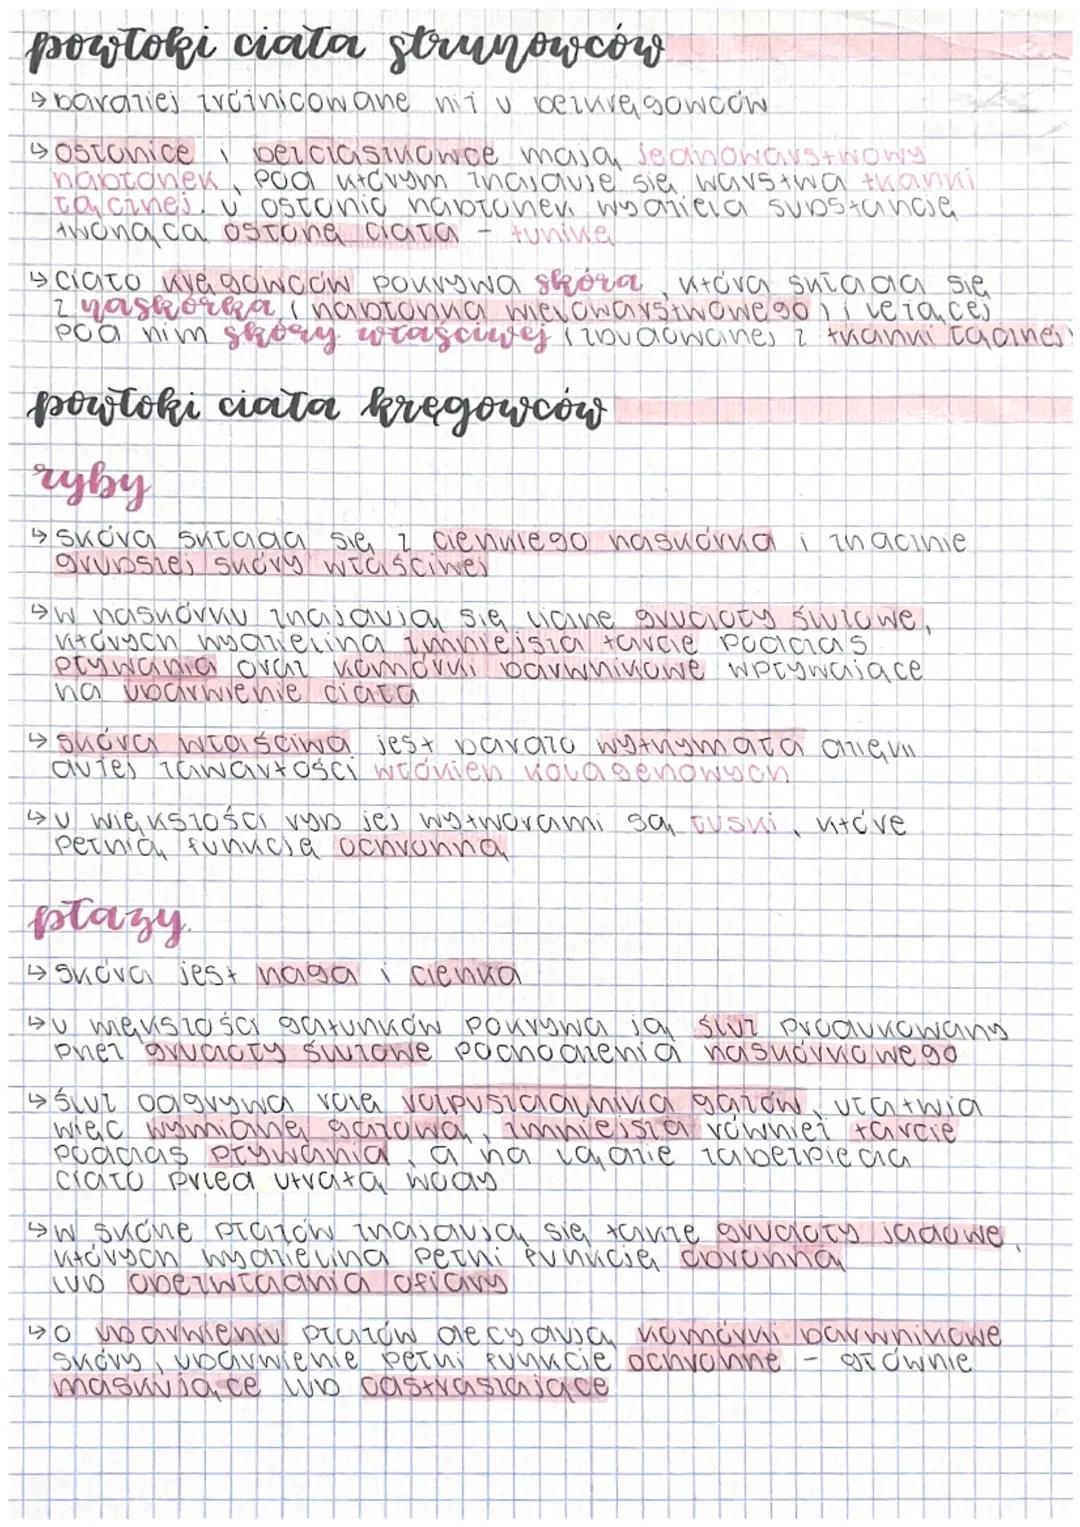 powłoki ciała strunowców
↳ bardziej zróżnicowane niż u bezkręgowców
↳ osłonice i bezczaszkowce mają jednowarstwowy
nabłonek, pod którym znajduje się warstwa tkanki
łącznej. u osłonic nabłonek wydziela substancję
tworzącą osłonę ciała - tunikę
↳ ciało kręgowców pokrywa skóra, która składa się
z naskórka (nabłonka wielowarstwowego) i leżącej
pod nim skóry właściwej (zbudowanej z tkanki łącznej)
powłoki ciała kręgowców
ryby
↳ skóra składa się z cienkiego naskórka i znacznie
grubszej skóry właściwej
↳ w naskórku znajdują się liczne gruczoły śluzowe,
których wydzielina zmniejsza tarcie podczas
pływania oraz komórki barwnikowe wpływające
na ubarwienie ciała
↳ skóra właściwa jest bardzo wytrzymała dzięki
dużej zawartości włókien kolagenowych
↳ u większości ryb jej wytworami są łuski, które
pełnią funkcję ochronną
płazy
↳ skóra jest naga i cienka
↳ u większości gatunków pokrywa ją śluz produkowany
przez gruczoły śluzowe pochodzenia naskórkowego
↳ śluz odgrywa rolę rozpuszczalnika gazów, ułatwia
więc wymianę gazową, zmniejsza również tarcie
podczas pływania, a na lądzie zabezpiecza
ciało przed utratą wody
↳ w skórze płazów znajdują się także gruczoły jadowe,
których wydzielina pełni funkcję obronną
lub obezwładnia ofiary
↳ o ubarwieniu płazów decydują komórki barwnikowe
skóry, ubarwienie pełni funkcje ochronne - głównie
maskujące lub odstraszające